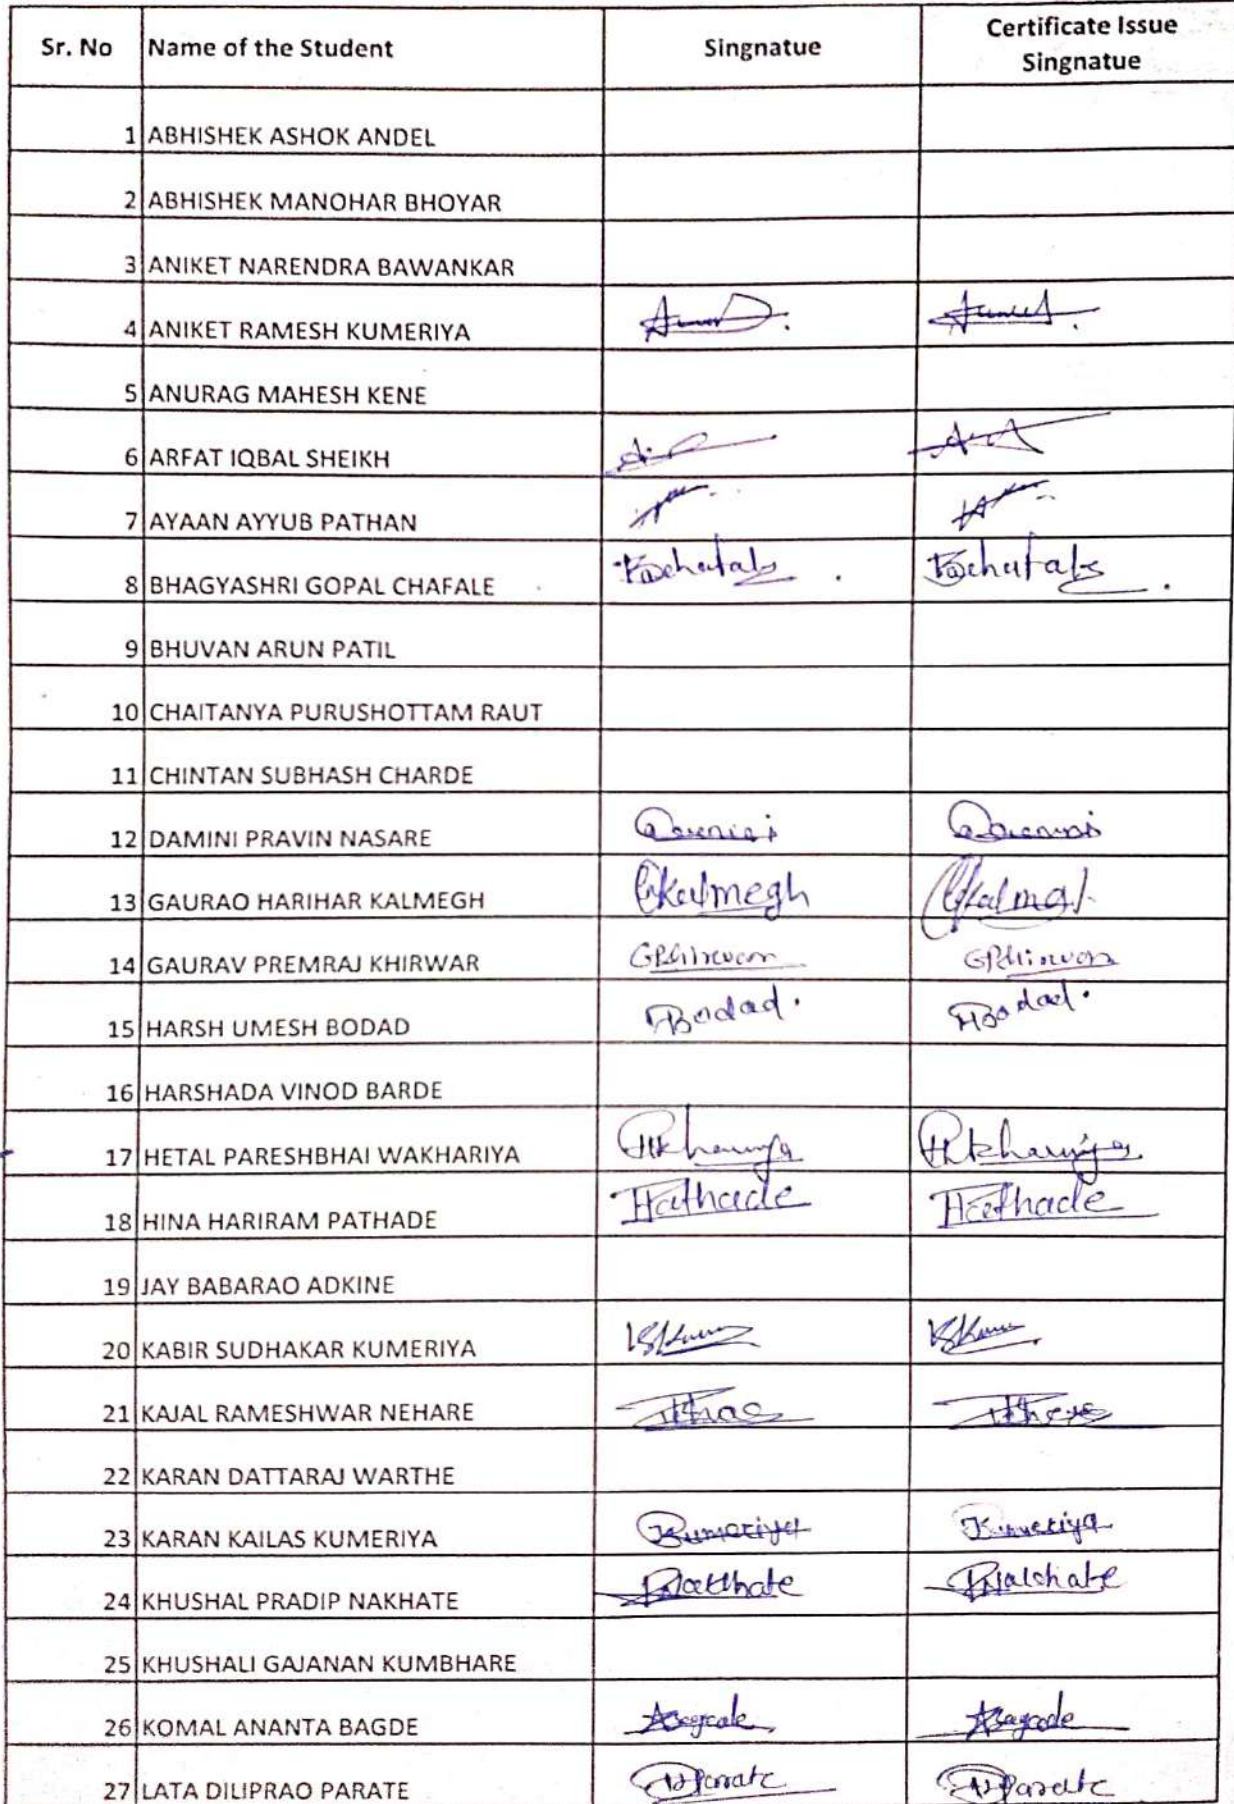 Sr. No Name of the Student Singnatue Certificate Issue Singnatue
1 ABHISHEK ASHOK ANDEL
2 ABHISHEK MANOHAR BHOYAR
3 ANIKET NARENDRA BAWANKAR
4 ANIKET RAMESH KUMERIYA
5 ANURAG MAHESH KENE
6 ARFAT IQBAL SHEIKH
7 AYAAN AYYUB PATHAN
8 BHAGYASHRI GOPAL CHAFALE
9 BHUVAN ARUN PATIL
10 CHAITANYA PURUSHOTTAM RAUT
11 CHINTAN SUBHASH CHARDE
12 DAMINI PRAVIN NASARE
13 GAURAO HARIHAR KALMEGH Gkalmegh
14 GAURAV PREMRAJ KHIRWAR
15 HARSH UMESH BODAD HBodad. HBodad.
16 HARSHADA VINOD BARDE
17 HETAL PARESHBHAI WAKHARIYA
18 HINA HARIRAM PATHADE
19 JAY BABARAO ADKINE
20 KABIR SUDHAKAR KUMERIYA
21 KAJAL RAMESHWAR NEHARE
22 KARAN DATTARAJ WARTHE
23 KARAN KAILAS KUMERIYA Kumeriya Kumeriya
24 KHUSHAL PRADIP NAKHATE
25 KHUSHALI GAJANAN KUMBHARE
26 KOMAL ANANTA BAGDE
27 LATA DILIPRAO PARATE